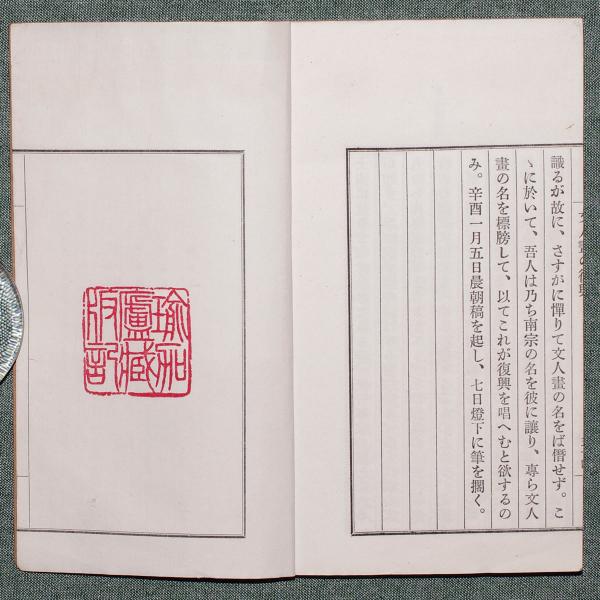 識るが故に、さすがに憚りて文人畫の名をば僭せず。こ
ゝに於いて、吾人は乃ち南宗の名を彼に讓り、專ら文人
畫の名を標牓して、以てこれが復興を唱へむと欲するの
み。辛酉一月五日晨朝稿を起し、七日燈下に筆を擱く。
瑜伽
廬藏
版記